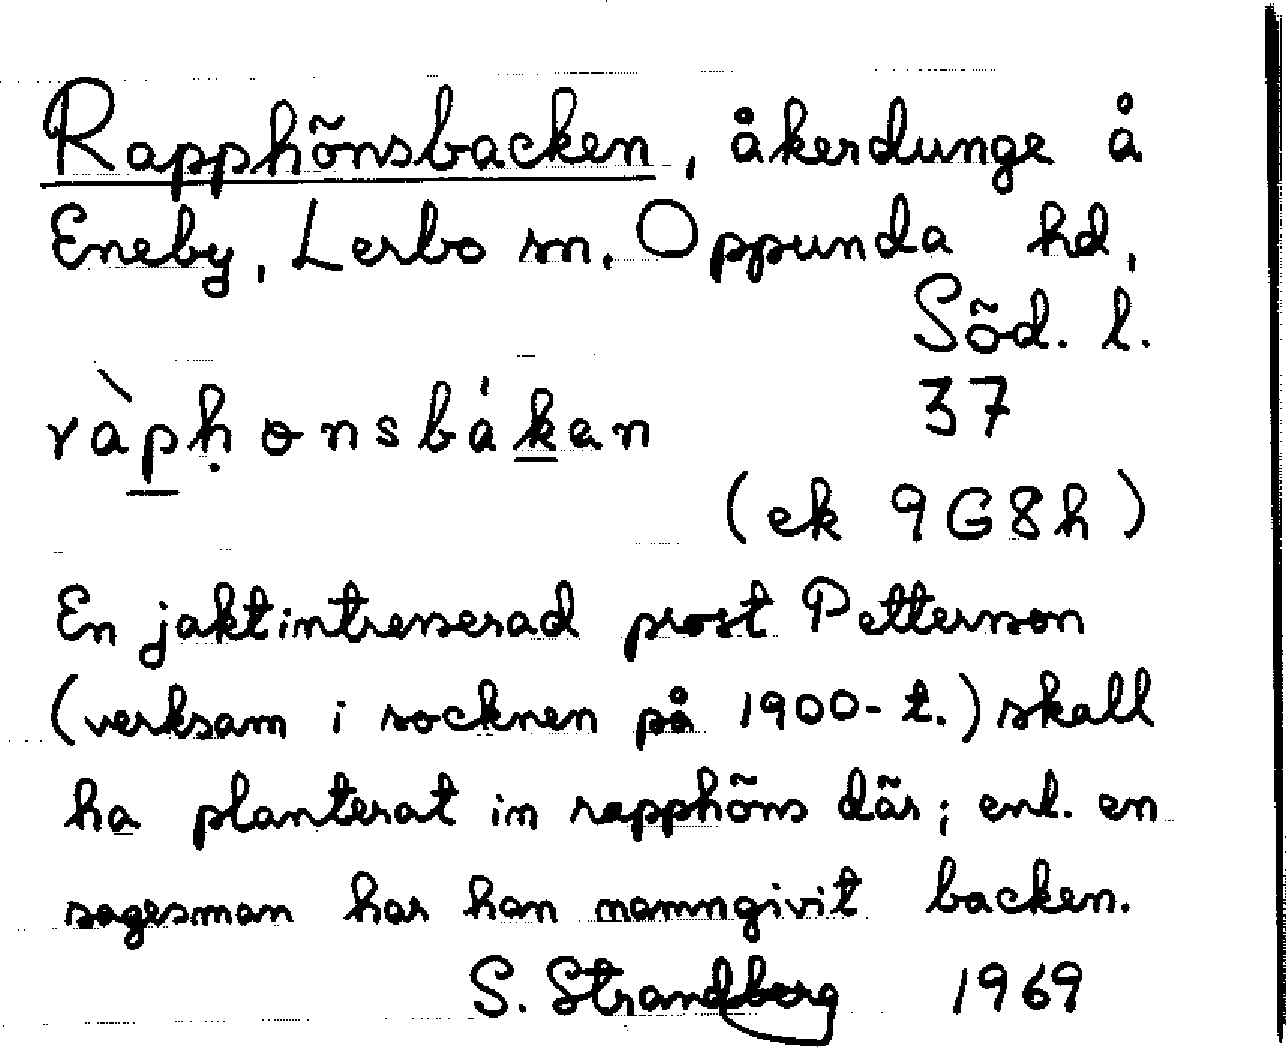 Rapphönsbacken, åkerdunge å
Eneby, Lerbo sn. Oppunda hd,
Söd. l.
ràphonsbákan
37
(ek 9G8h)
En jaktintresserad prost Petterson
(verksam i socknen på 1900-t.) skall
ha planterat in rapphöns där; enl. en
sagesman har han namngivit backen.
S. Strandberg 1969